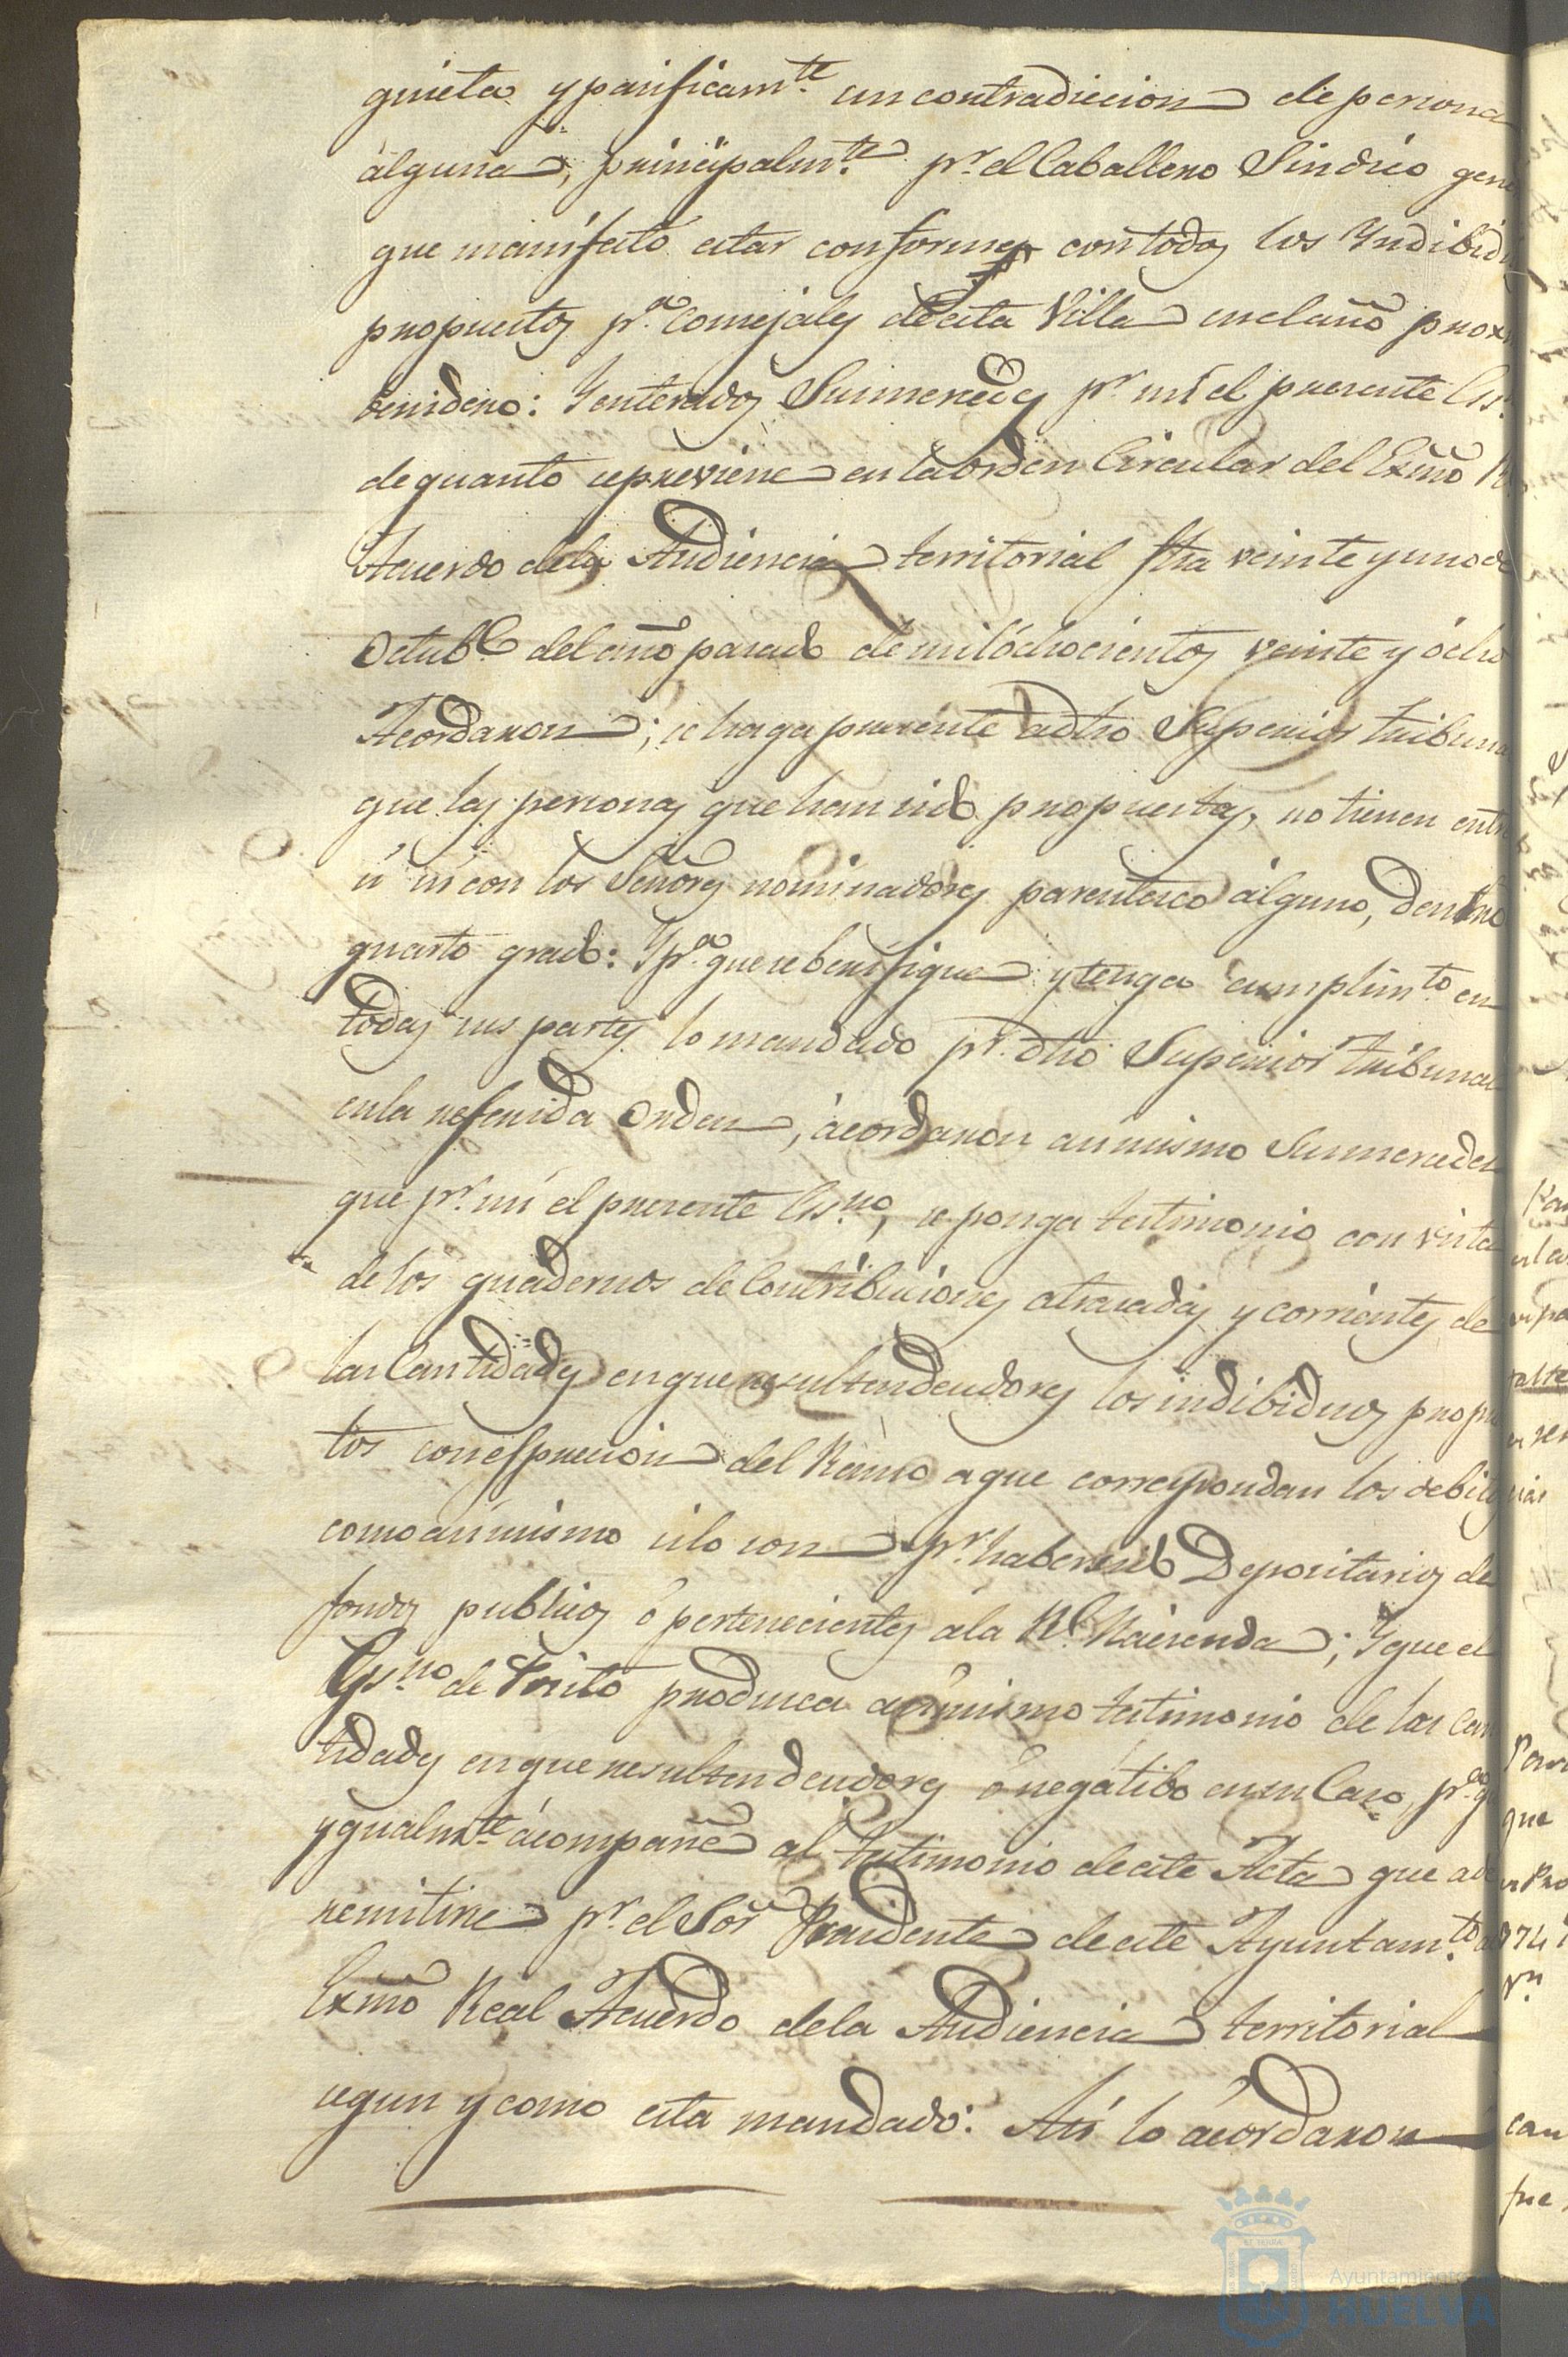 quieta y pasificam.te sin contradiccion de persona
alguna, principalm.te pr. el Caballero Sindico gene
que manifestó estar conforme con todos los Yndibidu
propuestos pr.a Consejales de esta Villa en el año proxi
benidero: Y enterados Sus mercedes pr. mi el presente Es.
de quanto se previene en la orden Circular del Exmo R.
Acuerdo de la Audiencia territorial fha veinte y uno de
Octubre del año pasado de mil óchocientos veinte y ócho
Acordaron; se haga presente a dho Superior tribuna
que las personas que han sido propuestas, no tienen entre
si ni con los Señores nominadores parentesco alguno, dentro
quarto grado: Y pr.a que se berifique y tenga cumplim.to en
todas sus partes lo mandado pr. dho Superior tribunal
en la referida orden, ácordaron asimismo Sus mercedes
que pr. mi el presente Es.no, se ponga testimonio con vista
de los quadernos de Contribuciones atrasadas y corrientes de
las Cantidades en que resulten deudores los indibiduos propu
tos con espresion del Ramo a que correspondan los debitos
como asimismo si lo son pr. haber sido Depositarios de
fondos publicos ó pertenecientes a la Rl. Hacienda; Y que el
Es.no de Posito produsca asimismo testimonio de las can
tidades en que resulten deudores ó negatibo en su Caso, pr.a q
ygualm.te ácompañe al testimonio de este Acta que a de
remitirse pr. el Sor Presidente de este Ayuntam.to al
Exmo Real Acuerdo de la Audiencia territorial
segun y como esta mandado: Asi lo ácordaron
Ayuntamiento
HUELVA